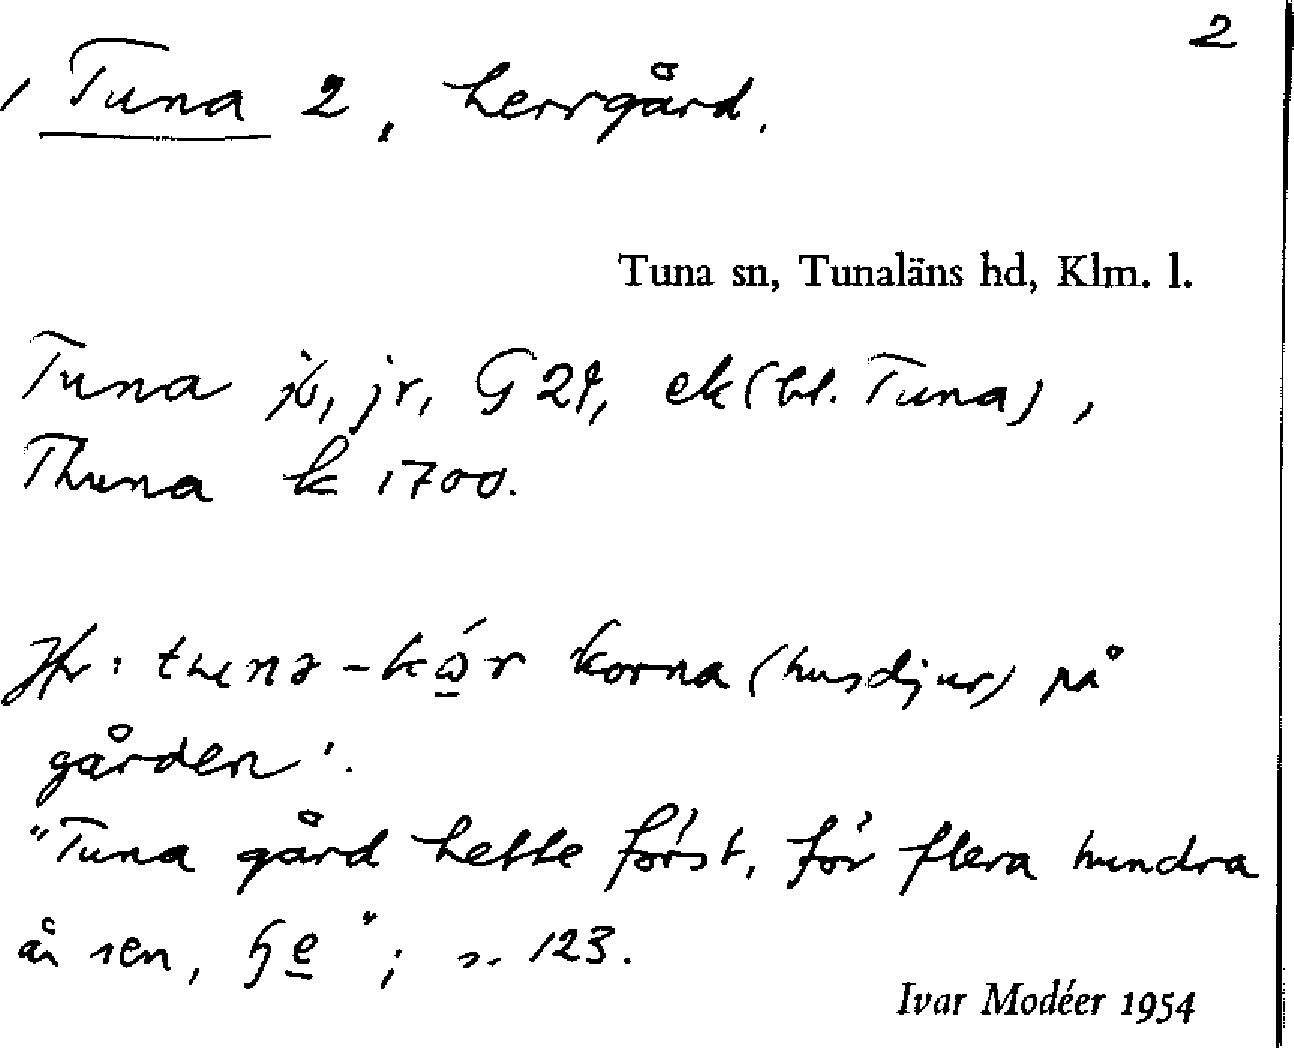 2
Tuna 2, herrgård.
Tuna sn, Tunaläns hd, Klm. l.
Tuna jb, jr, G 24, ek (bl. Tuna),
Thuna k 1700.
Jfr: korna (husdjur) på
gården'.
"Tuna gård hette först, för flera hundra
år sen, "; s. 123.
Ivar Modéer 1954